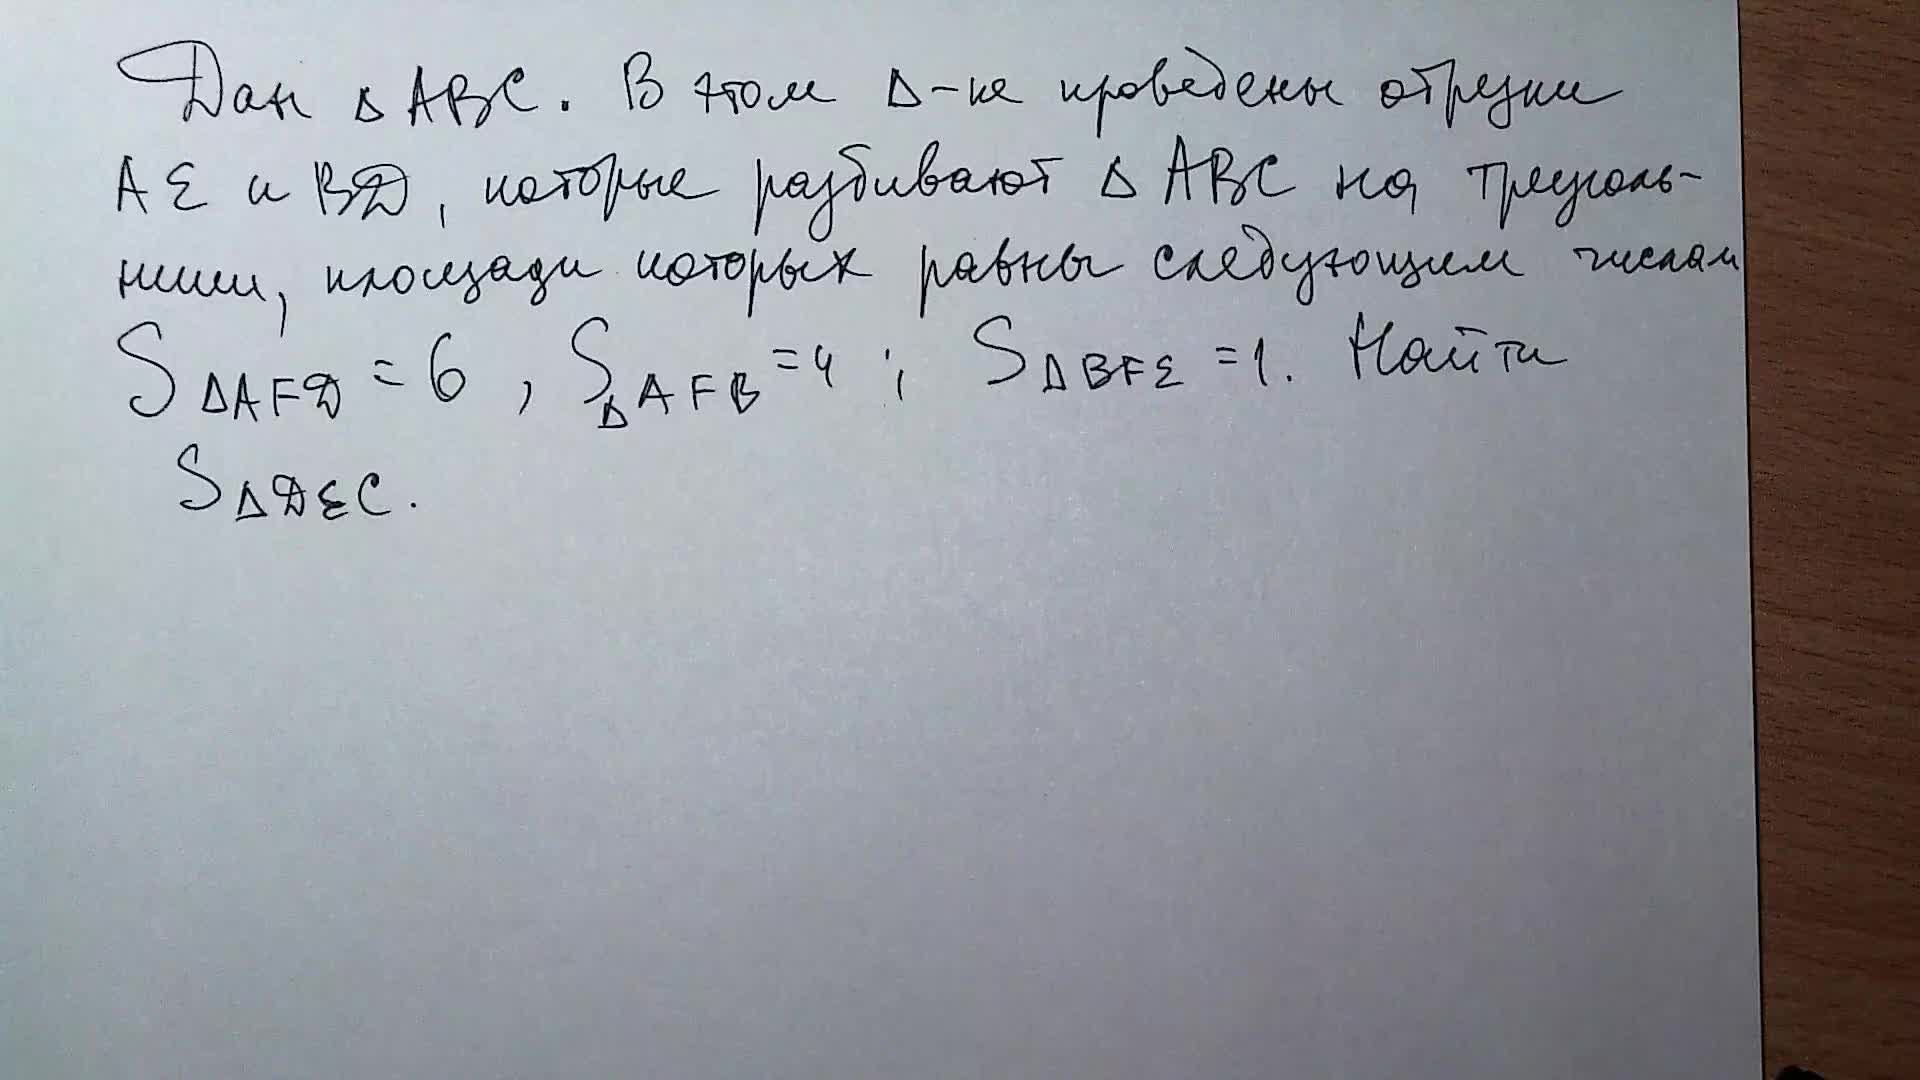 Дан Δ ABC. В этом Δ-ке проведены отрезки
AE и BD, которые разбивают Δ ABC на треуголь-
ники, площади которых равны следующим числам
S ΔAFD = 6 , S ΔAFB = 4 ; S ΔBFE = 1. Найти
S ΔDEC.